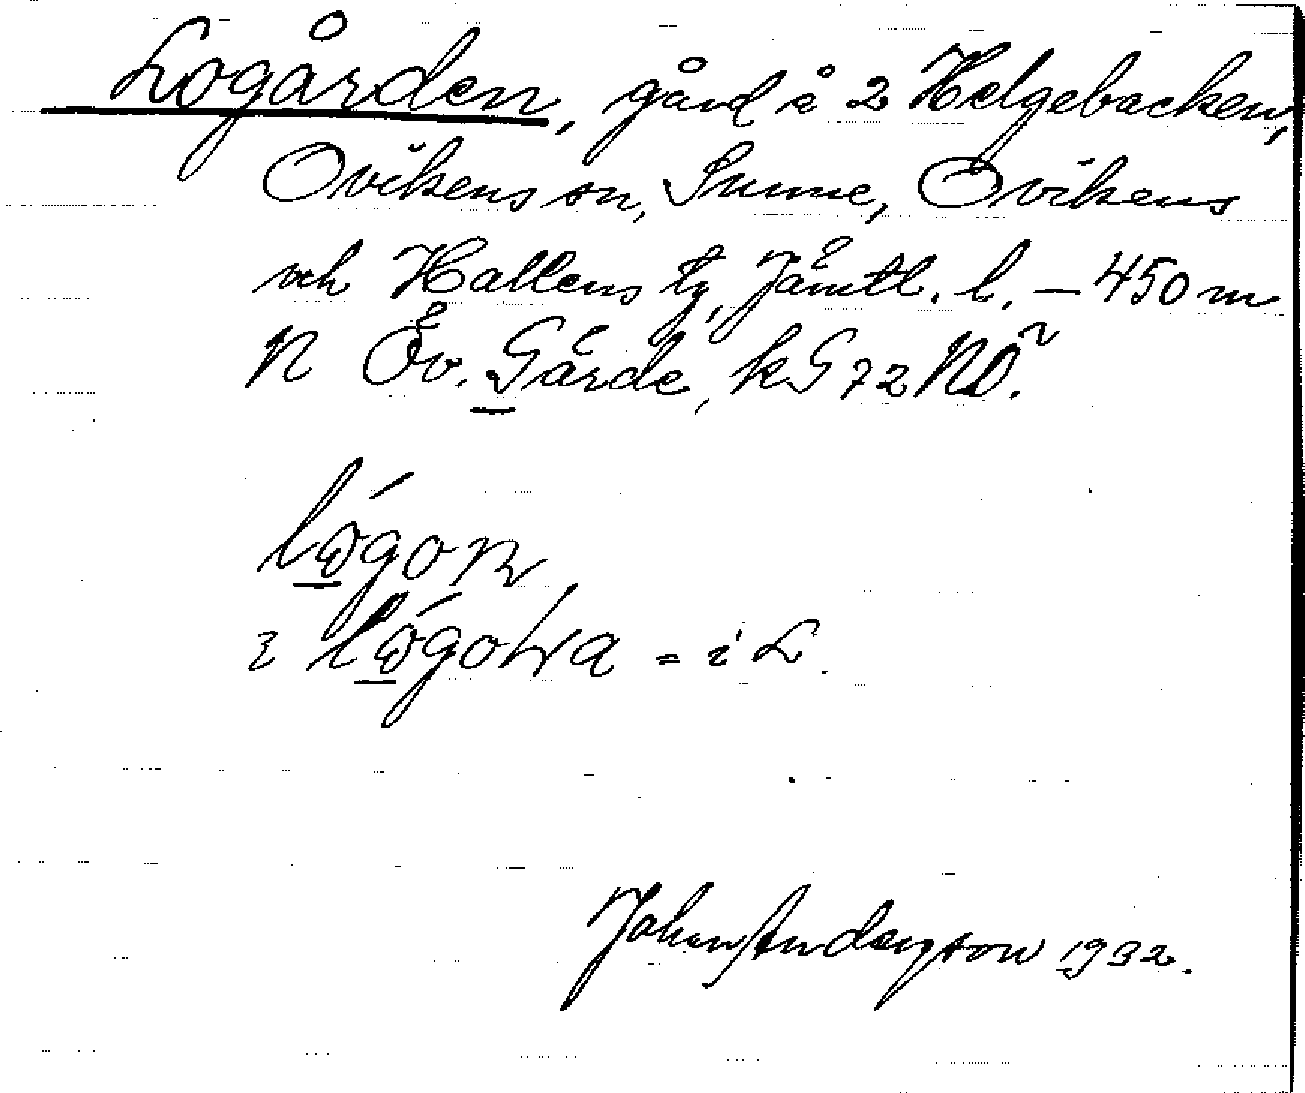 Logården, gård i 2 Helgebacken,
Ovikens sn, Sunne, Ovikens
och Hallens tg, Jämtl. l. – 450 m
N Öv. Gärde, kG 72 NO.
i = i L.
John Anderson 1932.